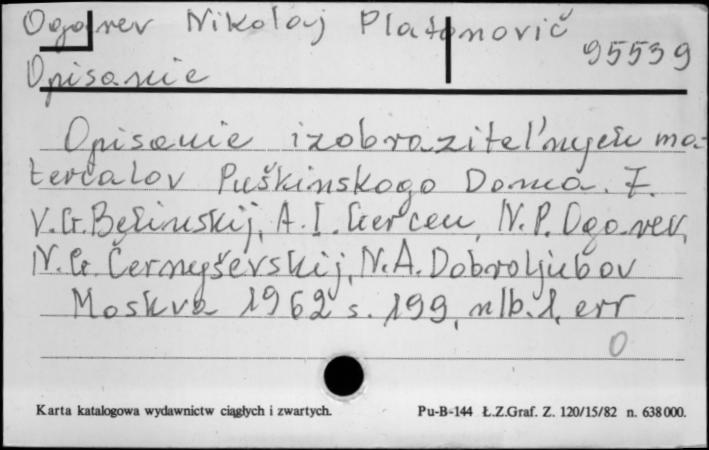 Ogarev Nikolaj Platonovič
95539
Opisanie
Opisanie izobrazitel'nych ma-
terialov Puškinskogo Doma. 7.
V.G. Belinskij, A.I. Gercen, N.P. Ogarev,
N.G. Černyševskij, N.A. Dobroljubov
Moskva 1962 s. 199, nlb. 1, err
0
Karta katalogowa wydawnictw ciągłych i zwartych.
Pu-B-144 Ł.Z.Graf. Z. 120/15/82 n. 638000.